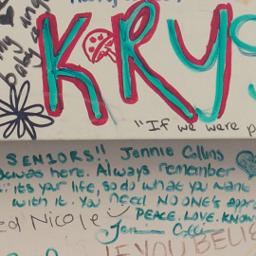 my
baby
KRYS
"If we were p
SENIORS!! Jennie Collins
was here. Always remember
it's your life, so do what you want
with it. You need NO ONE's appro
ed Nicole
PEACE. LOVE. KNOW
IF YOU BELIE